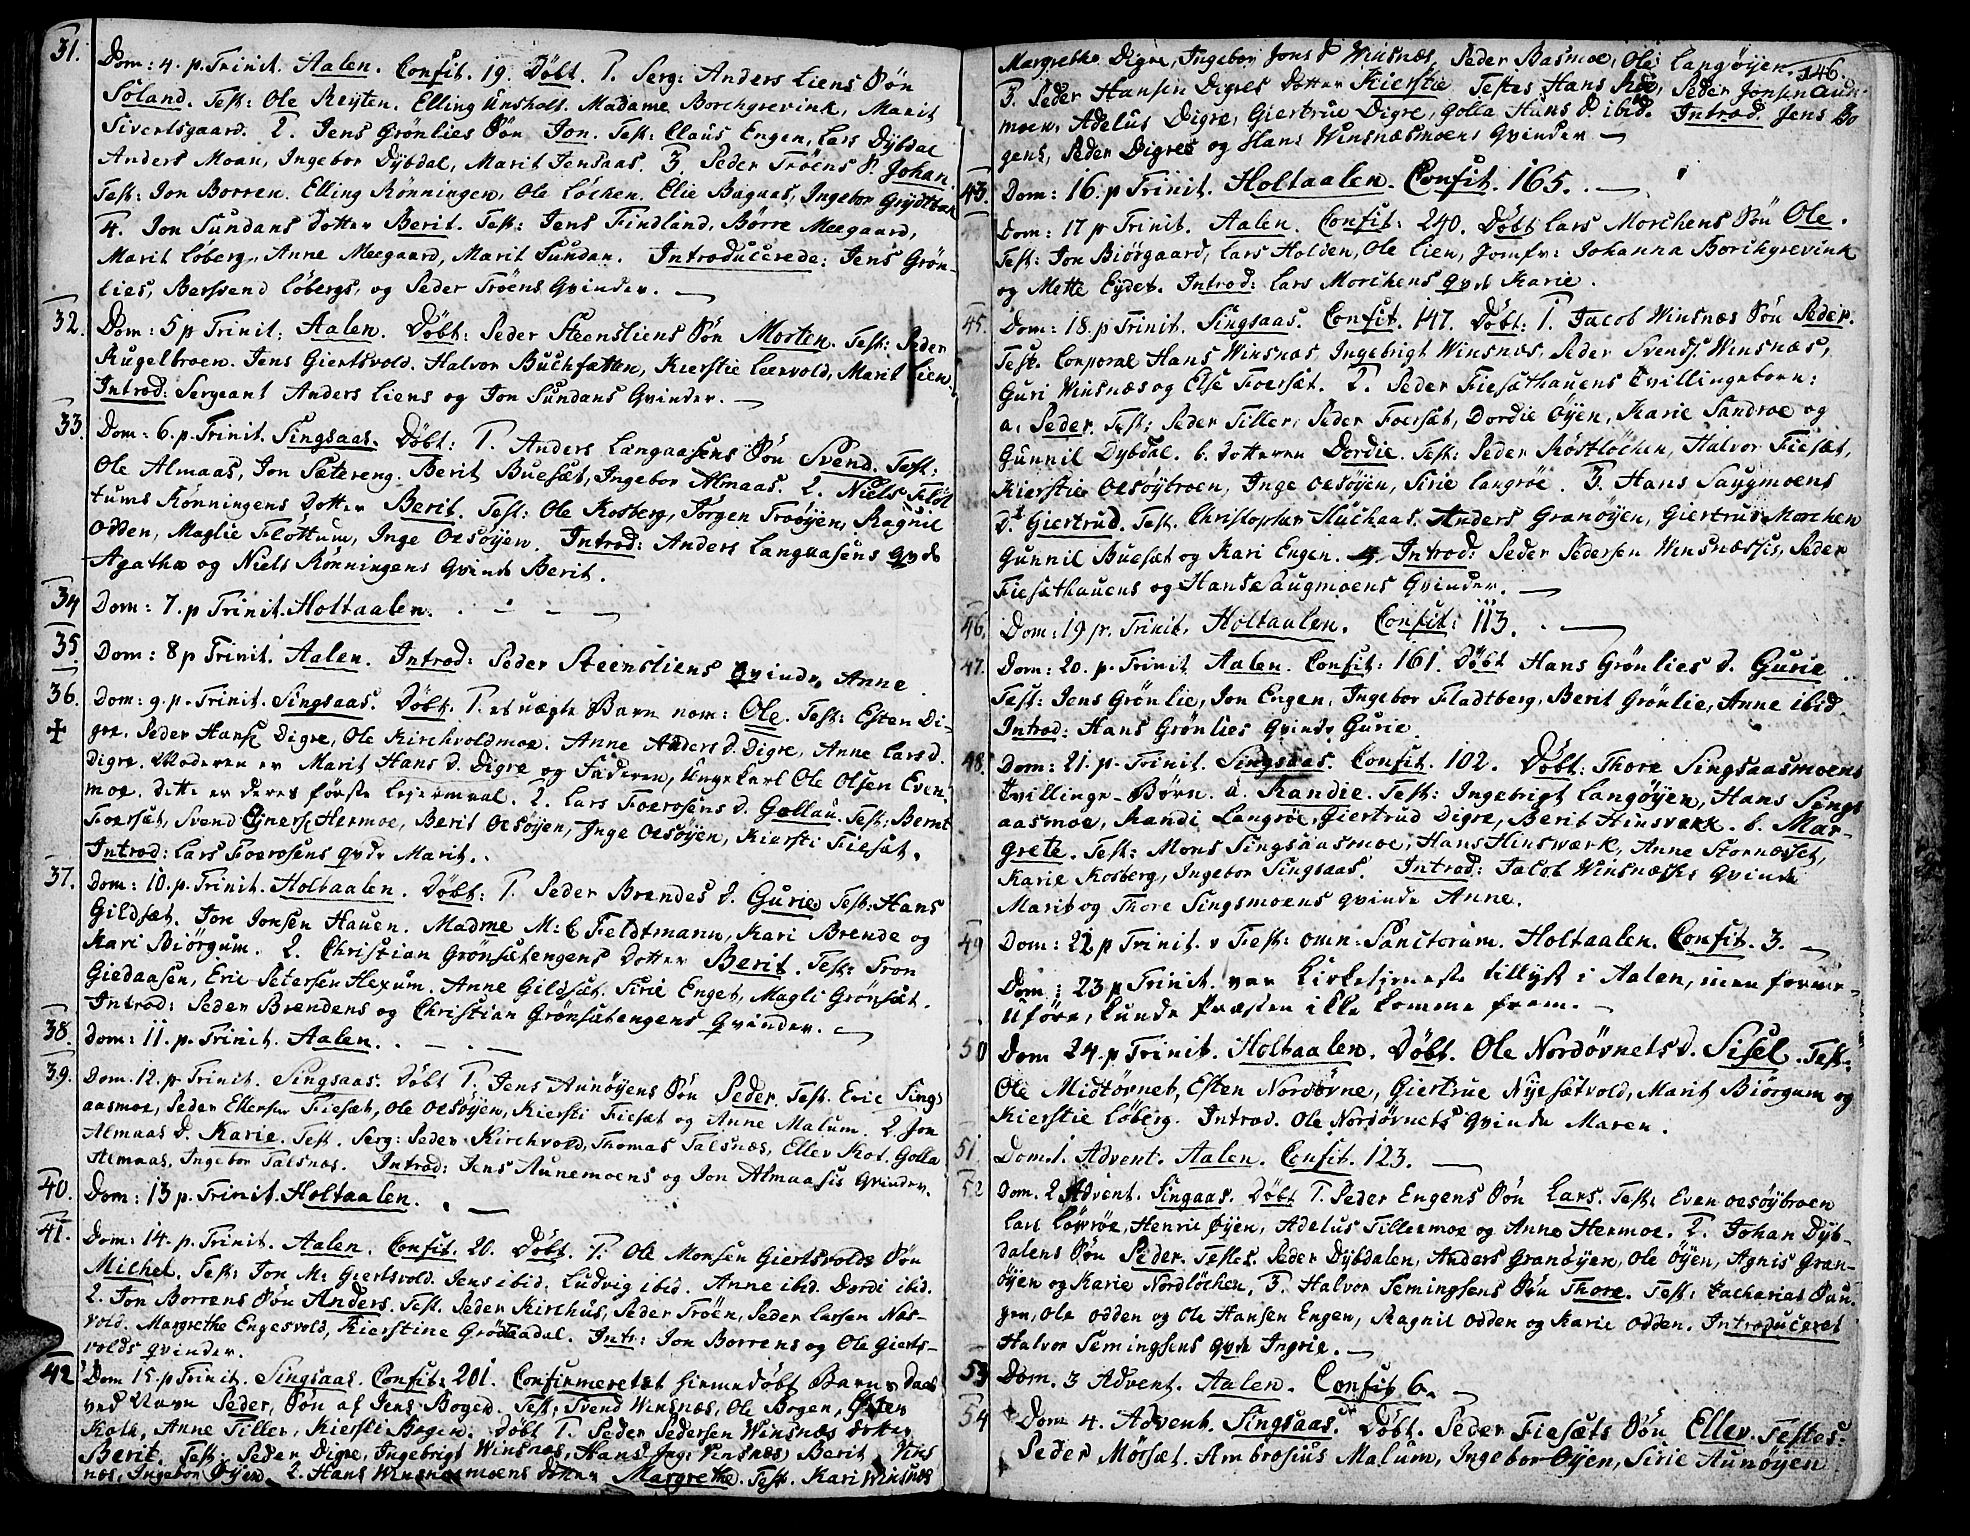 31. Dom: 4. p. Trinit. Aalen. Confit. 19. Döbt. 1. Serg: Anders Liens Sön
Soland. Test: Ole Reyten. Elling Unsholt. Madame Borchgrevink, Marit
Sivertsgaard. 2. Jens Grönlies Sön Jon. Test: Claus Engen, Lars Dybdal
Anders Moan, Ingebor Dybdal, Marit Jensaas. 3 Peder Tröens S. Johan.
Test: Jon Borren. Elling Rönningen, Ole Löchen. Elie Bagaas, Ingebor Grydtbak
4. Jon Sundans Dotter Berit. Test: Jens Findland, Börre Meegaard,
Marit Löberg, Anne Meegaard, Marit Sundan. Introducerede: Jens Grön-
lies, Bersvend Löbergs, og Peder Tröens Qvinder.
32. Dom: 5 p Trinit: Aalen. Döbt: Peder Steensliens Sön Morten. Test: Peder
Kugelbroen. Jens Giertsvold. Halvor Buchfatten, Kierstie Leervold, Marit Lien.
Introd: Sergeant Anders Liens og Jon Sundans Qvinder.
33. Dom: 6. p. Trinit. Singsaas. Döbt: 1. Anders Langaasens Sön Svend. Test:
Ole Almaas, Jon Setereng. Berit Buesæt, Ingebor Almaas. 2. Niels Flöt
tums Rönningens Dotter Berit. Test: Ole Kosberg, Jörgen Troöyen, Ragnil
Odden, Maglie Flottum, Inge Oesöyen. Introd: Anders Langaasens Qvde
Agatha og Niels Rönningens Qvinde Berit.
34 Dom: 7. p Trinit. Holtaalen.
35 Dom: 8 p Trinit. Aalen. Introd: Peder Steensliens Qvinde Anne.
36. Dom: 9. p. Trinit. Singsaas. Döbt: 1. et uægte Barn nom: Ole. Test: Esten Di-
gre, Peder Hans: Digre, Ole Kirchvoldmoe. Anne Anders D. Digre, Anne Lars D.
Digre. Moderen er Marit Hans D. Digre og Faderen, Unge Karl Ole Olsen Even-
moe. dette er deres förste Leiermaal. 2. Lars Foerosens D. Gollau. Test: Bernt
Foersæt, Svend Hermoe, Berit Oesöyen, Inge Oesöyen, Kiersti Fiesæt.
Introd: Lars Foerosens Qvde Marit.
37. Dom: 10. p. Trinit. Holtaalen. Döbt: 1. Peder Brendes D. Gurie Test: Hans
Gildsæt. Jon Jonsen Hauen. Madme M: C Feldtmann, Kari Brende og
Kari Biörgum. 2. Christian Grönsætengens Dotter Berit. Test: Tron
Giedaasen, Eric Petersen Hexum. Anne Gildsæt. Sirie Enget, Magli Grönsæt.
Introd: Peder Brendens og Christian Grönsætengens Qvinder.
38. Dom: 11. p. Trinit. Aalen.
39. Dom: 12. p Trinit. Singsaas. Döbt 1. Jens Aunöyens Sön Peder. Test. Eric Sings
aasmoe, Peder Ellersen Fiesæt, Ole Oesöyen, Kiersti Fiesæt og Anne Malum. 2. Jon
Almaas D. Karie. Test. Serg: Peder Kirchvold, Thomas Talsnæs, Eller Kot. Golla
Almaas, Ingebor Talsnæs. Introd: Jens Aunemoens og Jon Almaasis Qvinder.
40. Dom: 13 p. Trinit. Holtaalen.
41. Dom: 14. p. Trinit. Aalen. Confit. 20. Döbt. 1. Ole Monsen Giertsvolds Sön
Michel. Test: Jon M: Giertsvold. Jens ibid. Ludvig ibid. Anne ibid. Dordi ibid.
2. Jon Borrens Sön Anders. Test. Peder Kirchus, Peder Tröen, Peder Larsen Næs-
vold. Margrethe Engesvold, Kierstine Grödtaadal. Intr: Jon Borrens og Ole Gierts-
volds Qvinder.
42 Dom 15. p Trinit. Singsaas. Confit: 201. Confirmeret et hiemedöbt Barn
ved Navn Peder, Sön af Jens Bogen. Test: Svend Winsnæs, Ole Bogen, Esten
Kolk, Anne Tiller, Kiersti Bogen. Döbt 1. Peder Pedersen Winsnæs Dotter
Berit. Test: Peder Digre, Ingebrigt Winsnæs, Hans Vinsnæs, Berit Vins
næs, Ingebor Öyen. 2. Hans Winsnesmoens Dotter Margrethe. Test. Kari Winsnæs
146.
Margrethe Digre, Ingebor Jons D Winsnæs, Peder Basmoe, Ole Langöyen.
3. Peder Hansen Digres Dotter Kierstie Testes Hans Röe, Peder Jonsen Aune
moen, Adelus Digre, Giertrue Digre, Golla Hans D. ibid. Introd. Jens Bo
gens, Peder Digres og Hans Winsnæsmoens Qvinder
43. Dom: 16. p Trinit. Holtaalen. Confit. 165.
Dom: 17 p Trinit. Aalen. Confit: 240. Döbt Lars Morchens Sön Ole.
Test: Jon Biörgaard, Lars Holden, Ole Lien, Jomfr: Johanna Borchgrevink
og Mette Eydet. Introd: Lars Morchens Qvde Karie.
45. Dom: 18. p Trinit. Singsaas. Confit. 147. Döbt: 1. Jacob Winsnæs Sön Peder.
Test. Corporal Hans Winsnæs, Ingebrigt Winsnæs, Peder Svens: Winsnæs,
Guri Winsnæs og Else Foersæt. 2. Peder Fiesæthauens Tvillingebörn:
a. Peder. Test: Peder Tiller, Peder Foersæt, Dordie Öyen, Karie Sandroe og
Gunnil Dybdal. b. Dotteren Dordie. Test: Peder Röstlöchen, Halvor Fiesæt,
Kierstie Oesöybroen, Inge Oesöyen, Sirie Langröe. 3. Hans Saugmoens
D. Giertrud. Test. Christopher Huchaas. Anders Granöyen, Giertrue Morchen
Gunnil Buesæt og Kari Engen. Introd: Peder Pedersen Winsnæssis, Peder
Fiesæthauens og Hans Saugmoens Qvinder.
46. Dom: 19 p. Trinit. Holtaalen. Confit: 113.
47. Dom: 20. p. Trinit Aalen. Confit: 161. Döbt Hans Grönlies D. Gurie
Test: Jens Grönlie, Jon Engen, Ingebor Fladtberg, Berit Grönlie, Anne ibid
Introd: Hans Grönlies Qvinde Gurie.
48. Dom: 21. p. Trinit. Singsaas. Confit. 102. Döbt: Thore Singsaasmoens
Tvillinge-Börn. a. Randie. Test: Ingebrigt Langöyen, Hans Sings
aasmoe, Randi Langröe, Giertrud Digre, Berit Hinsværk. b. Mar-
grete. Test: Mons Singsaasmoe, Hans Hinsværk, Anne Stornæsset,
Karie Kosberg, Ingebor Singsaas. Introd: Jacob Winsnæssis Qvinde
Marit og Thore Singsmoens Qvinde Anne.
49 Dom: 22 p Trinit. v Fest: omn: Sanctorum. Holtaalen. Confit. 3.
Dom: 23 p Trinit. var Kirketieneste tillyst i Aalen, men formed-
Uföre, kunde Præsten ikke komme frem.
50 Dom 24. p Trinit. Holtaalen. Döbt. Ole Nordövnets D. Sisel. Test.
Ole Midtövnet, Esten Nordövne, Giertrue Nyesætvold, Marit Biörgum og
Kierstie Löberg. Introd. Ole Nordövnets Qvinde Maren.
51. Dom. 1. Advent. Aalen. Confit. 123.
52 Dom. 2 Advent. Singaas. Döbt 1. Peder Engens Sön Lars. Test: Even Oesöybroen
Lars Lövröe, Henric Öyen, Adelus Tillermoe og Anne Hermoe. 2. Johan Dyb-
dalens Sön Peder. Testes. Peder Dybdalen, Anders Granöyen, Ole Öyen, Agnis Gran-
öyen og Karie Nordlöchen, 3. Halvor Semingsens Sön Thore. Test: Zacharias Sau-
gen, Ole Odden og Ole Hansen Engen, Ragnil Odden og Karie Odden. Introduceret
Halvor Semingsens Qvde Ingrie.
53 Dom. 3 Advent. Aalen. Confit 6.
54 Dom 4. Advent. Singsaas. Döbt. Peder Fiesæts Sön Eller. Testes:
Peder Mörsæt. Ambrosius Malum, Ingebor Öyen, Sirie Aunöyen